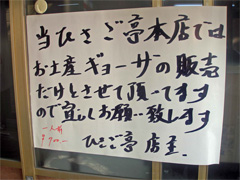 当ひさご亭本店では
お土産ギョーザの販売
だけとさせて頂いてます
ので宜しくお願い致します
一人前
ひさご亭 店主.